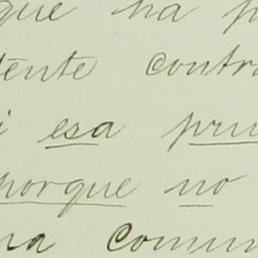 que ha p
tente contra
i esa pru
porque no
na comun